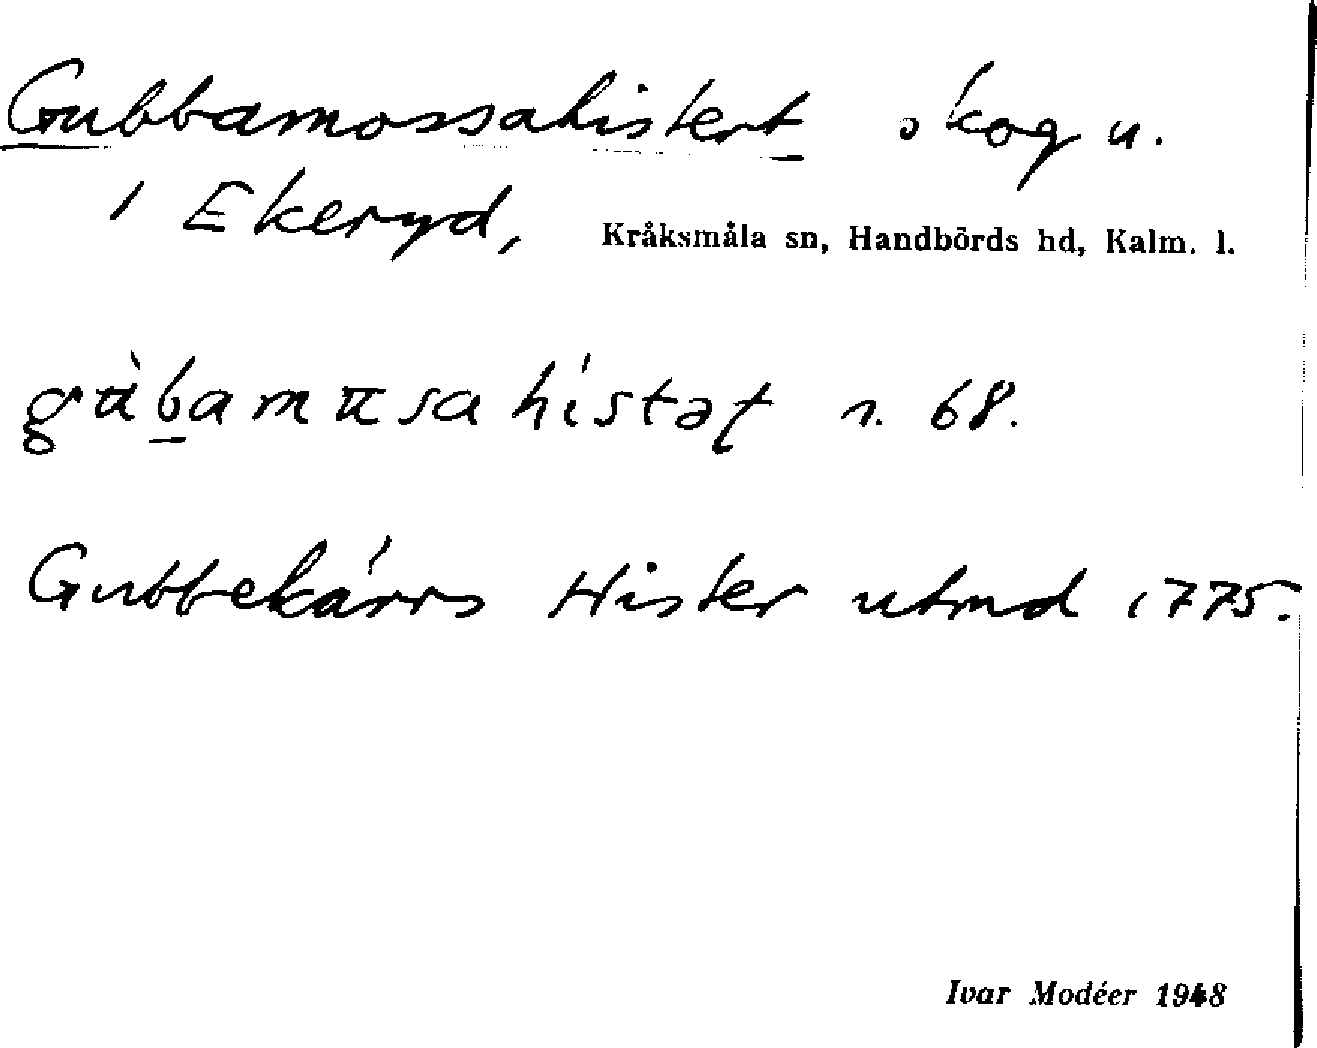 Gubbamossahistert skog u.
i Ekeryd, Kråksmåla sn, Handbörds hd, Kalm. l.
r. 68.
Gubbekärrs Hister utmd 1775.
Ivar Modéer 1948